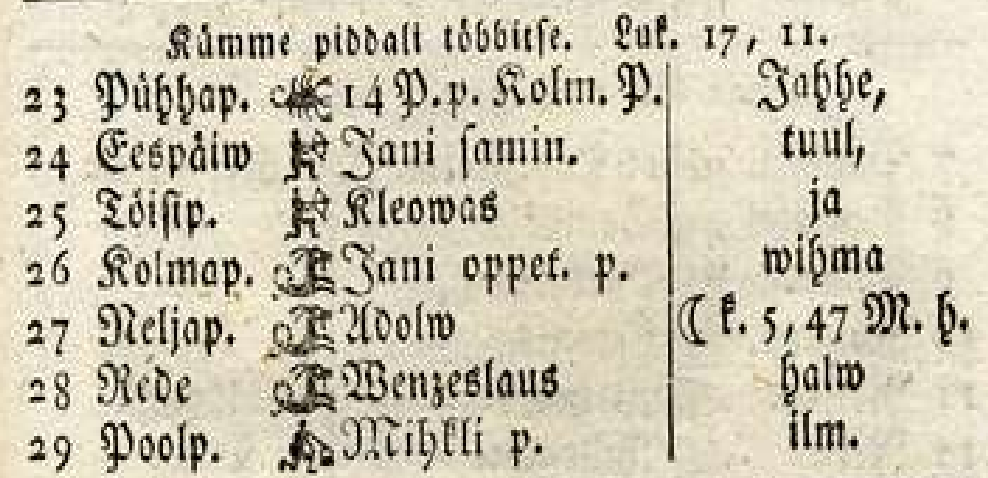 Kümme piddali többitse. Luk. 17, 11.
23 Pühhap. 14 P. p. Kolm. P. Jahhe,
24 Eespäiw Jani samin. tuul,
25 Töisip. Kleowas ja
26 Kolmap. Jani oppet. p. wihma
27 Neljap. Adolw ☾ k. 5, 47 M. h.
28 Rede Wenzeslaus halw
29 Poolp. Mihkli p. ilm.